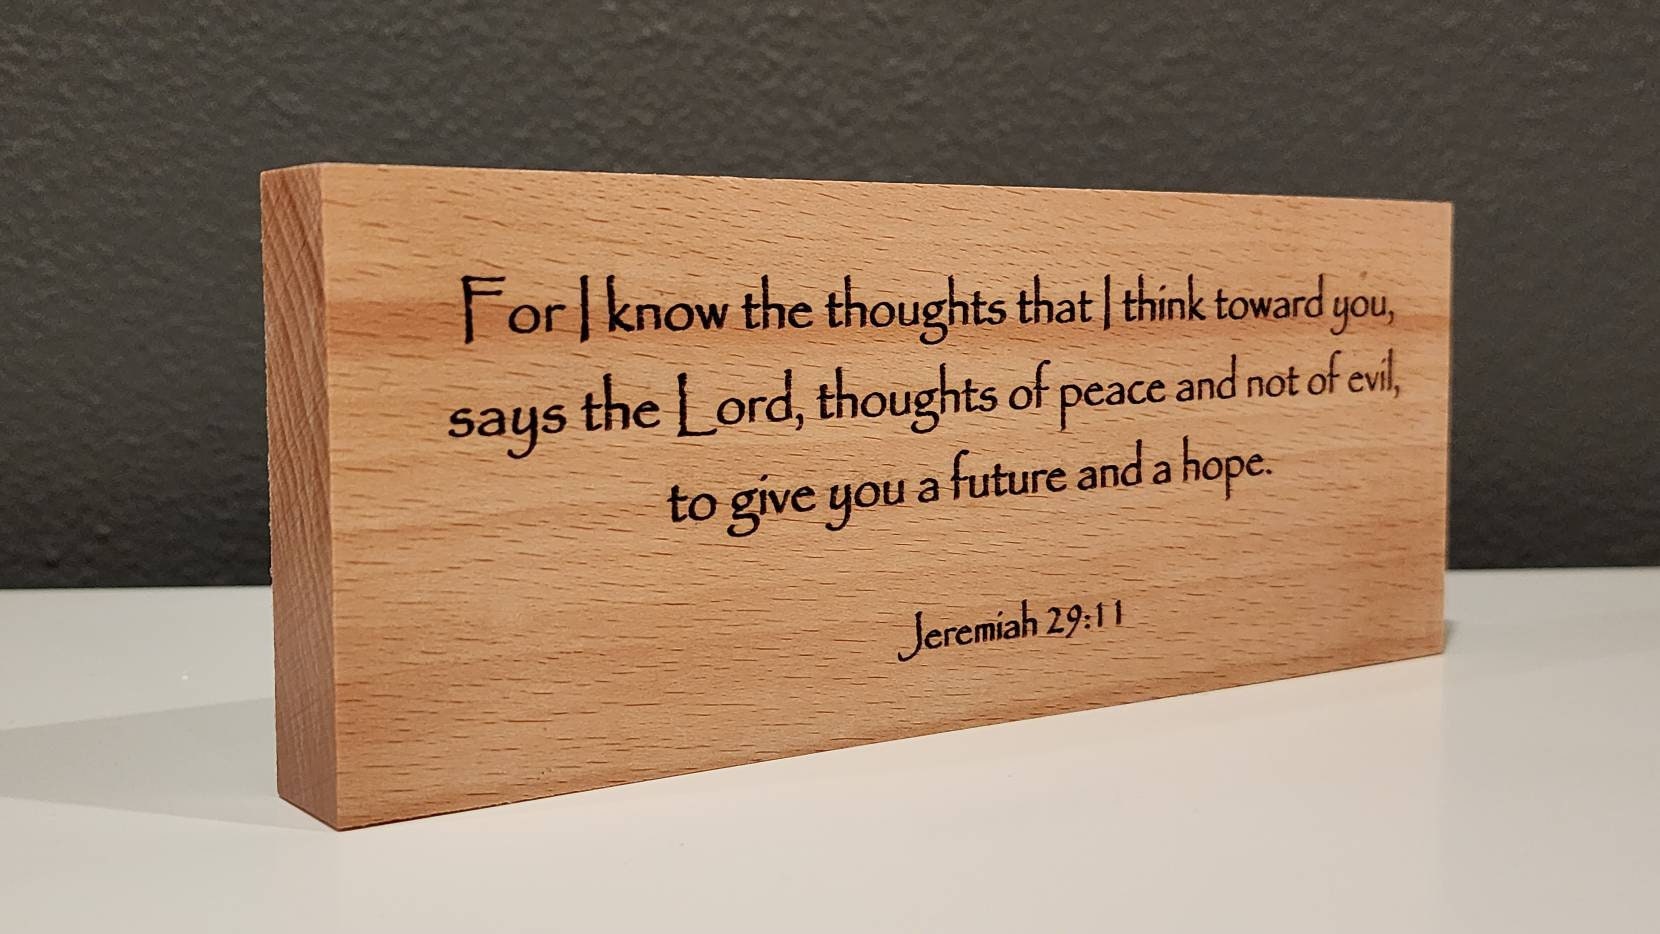 For I know the thoughts that I think toward you,
says the Lord, thoughts of peace and not of evil,
to give you a future and a hope.
Jeremiah 29:11